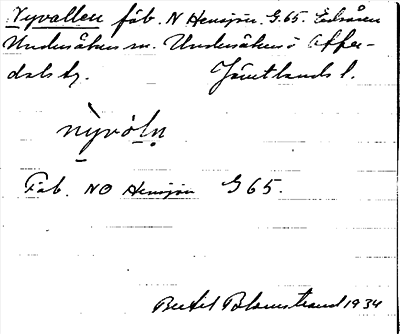 Nyvallen fäb. N Hensjön. G. 65. Edsåsen
Undersåkers sn. Undersåkers o Offer-
dals tg. Jämtlands l.
nyvòln
Fäb. NO Hensjön G 65.
Bertil Blomstrand 1934